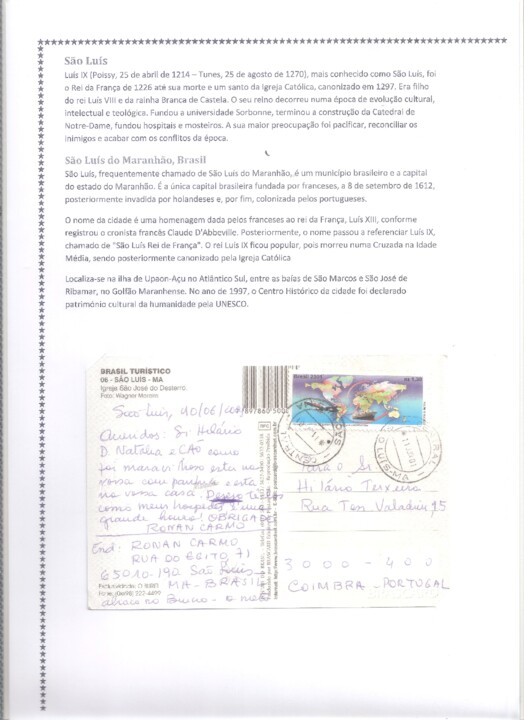 São Luís
Luís IX (Poissy, 25 de abril de 1214 – Tunes, 25 de agosto de 1270), mais conhecido como São Luís, foi
o Rei da França de 1226 até sua morte e um santo da Igreja Católica, canonizado em 1297. Era filho
do rei Luís VIII e da rainha Branca de Castela. O seu reino decorreu numa época de evolução cultural,
intelectual e teológica. Fundou a universidade Sorbonne, terminou a construção da Catedral de
Notre-Dame, fundou hospitais e mosteiros. A sua maior preocupação foi pacificar, reconciliar os
inimigos e acabar com os conflitos da época.
São Luís do Maranhão, Brasil
São Luís, frequentemente chamado de São Luís do Maranhão, é um município brasileiro e a capital
do estado do Maranhão. É a única capital brasileira fundada por franceses, a 8 de setembro de 1612,
posteriormente invadida por holandeses e, por fim, colonizada pelos portugueses.
O nome da cidade é uma homenagem dada pelos franceses ao rei da França, Luís XIII, conforme
registrou o cronista francês Claude D'Abbeville. Posteriormente, o nome passou a referenciar Luís IX,
chamado de "São Luís Rei de França". O rei Luís IX ficou popular, pois morreu numa Cruzada na Idade
Média, sendo posteriormente canonizado pela Igreja Católica
Localiza-se na ilha de Upaon-Açu no Atlântico Sul, entre as baías de São Marcos e São José de
Ribamar, no Golfão Maranhense. No ano de 1997, o Centro Histórico da cidade foi declarado
património cultural da humanidade pela UNESCO.
BRASIL TURÍSTICO
06 - SÃO LUÍS - MA
Igreja São José do Desterro.
Foto: Wagner
São Luís, 10/06/
Queridos: Sr Hilário
D. Natália e CÃO como
foi maravilhoso esta na
vossa companhia e esta
na vossa casa.
como meus hospedes é uma
grande honra! OBRIGADO
RONAN CARMO
End: RONAN CARMO
RUA DO EGITO 71
65010-190 São Luís
MA - BRASIL
abraço no Bruno -
Para o Sr.
Hilário Teixeira
Rua Tenente Valadim 95
3000-400
COIMBRA - PORTUGAL